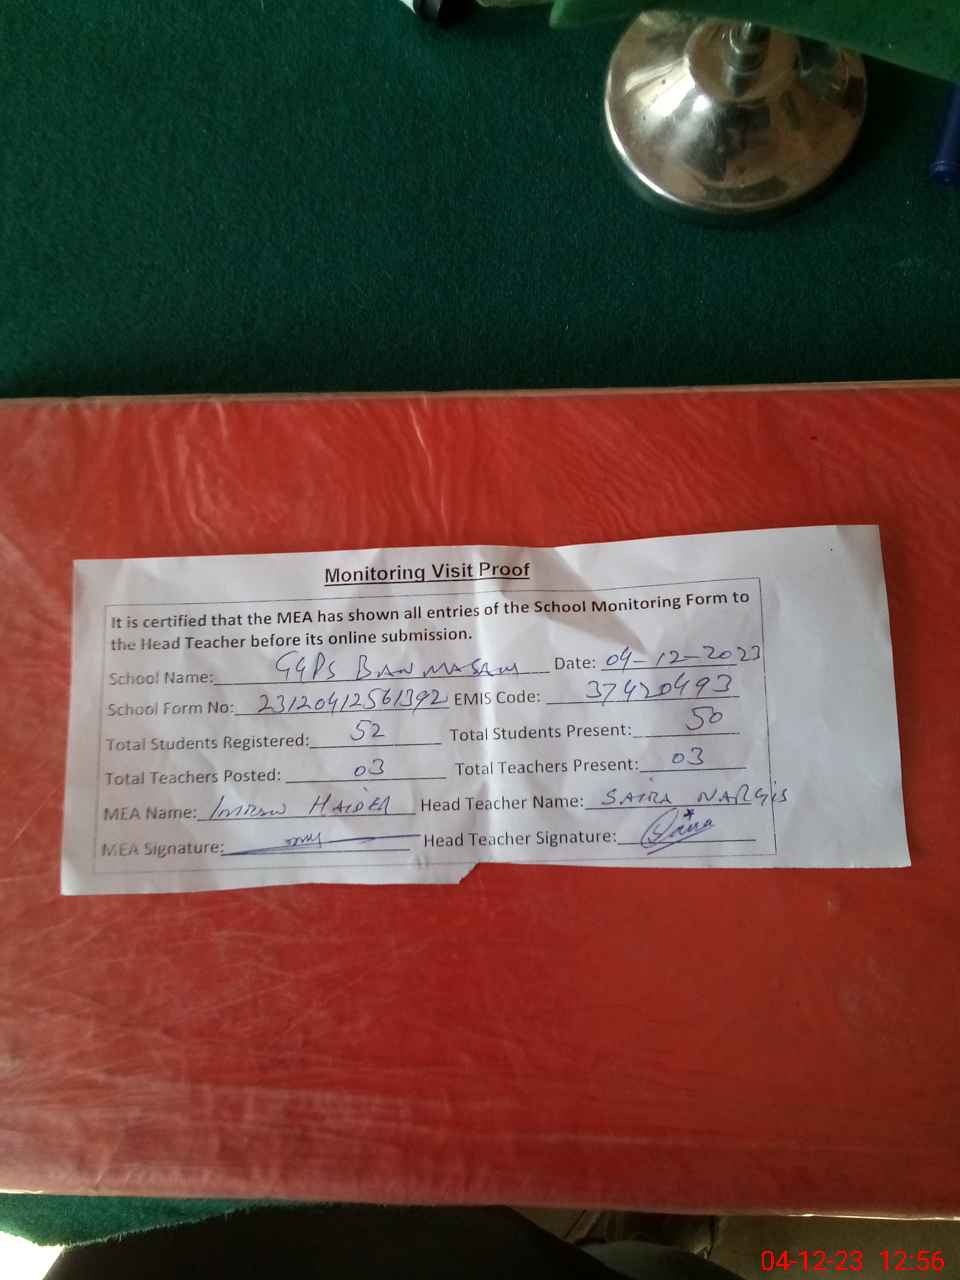 Monitoring Visit Proof
It is certified that the MEA has shown all entries of the School Monitoring Form to
the Head Teacher before its online submission.
School Name: GGPS BAN MASAM Date: 04-12-2023
School Form No: 23120412561392 EMIS Code: 37420493
Total Students Registered: 52 Total Students Present: 50
Total Teachers Posted: 03 Total Teachers Present: 03
MEA Name: Imran HAIDER Head Teacher Name: SAIRA NARGIS
MEA Signature: Head Teacher Signature: Saira
04-12-23 12:56